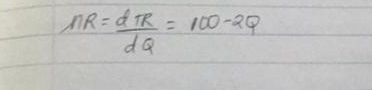 MR = dTR/dQ = 100-2Q